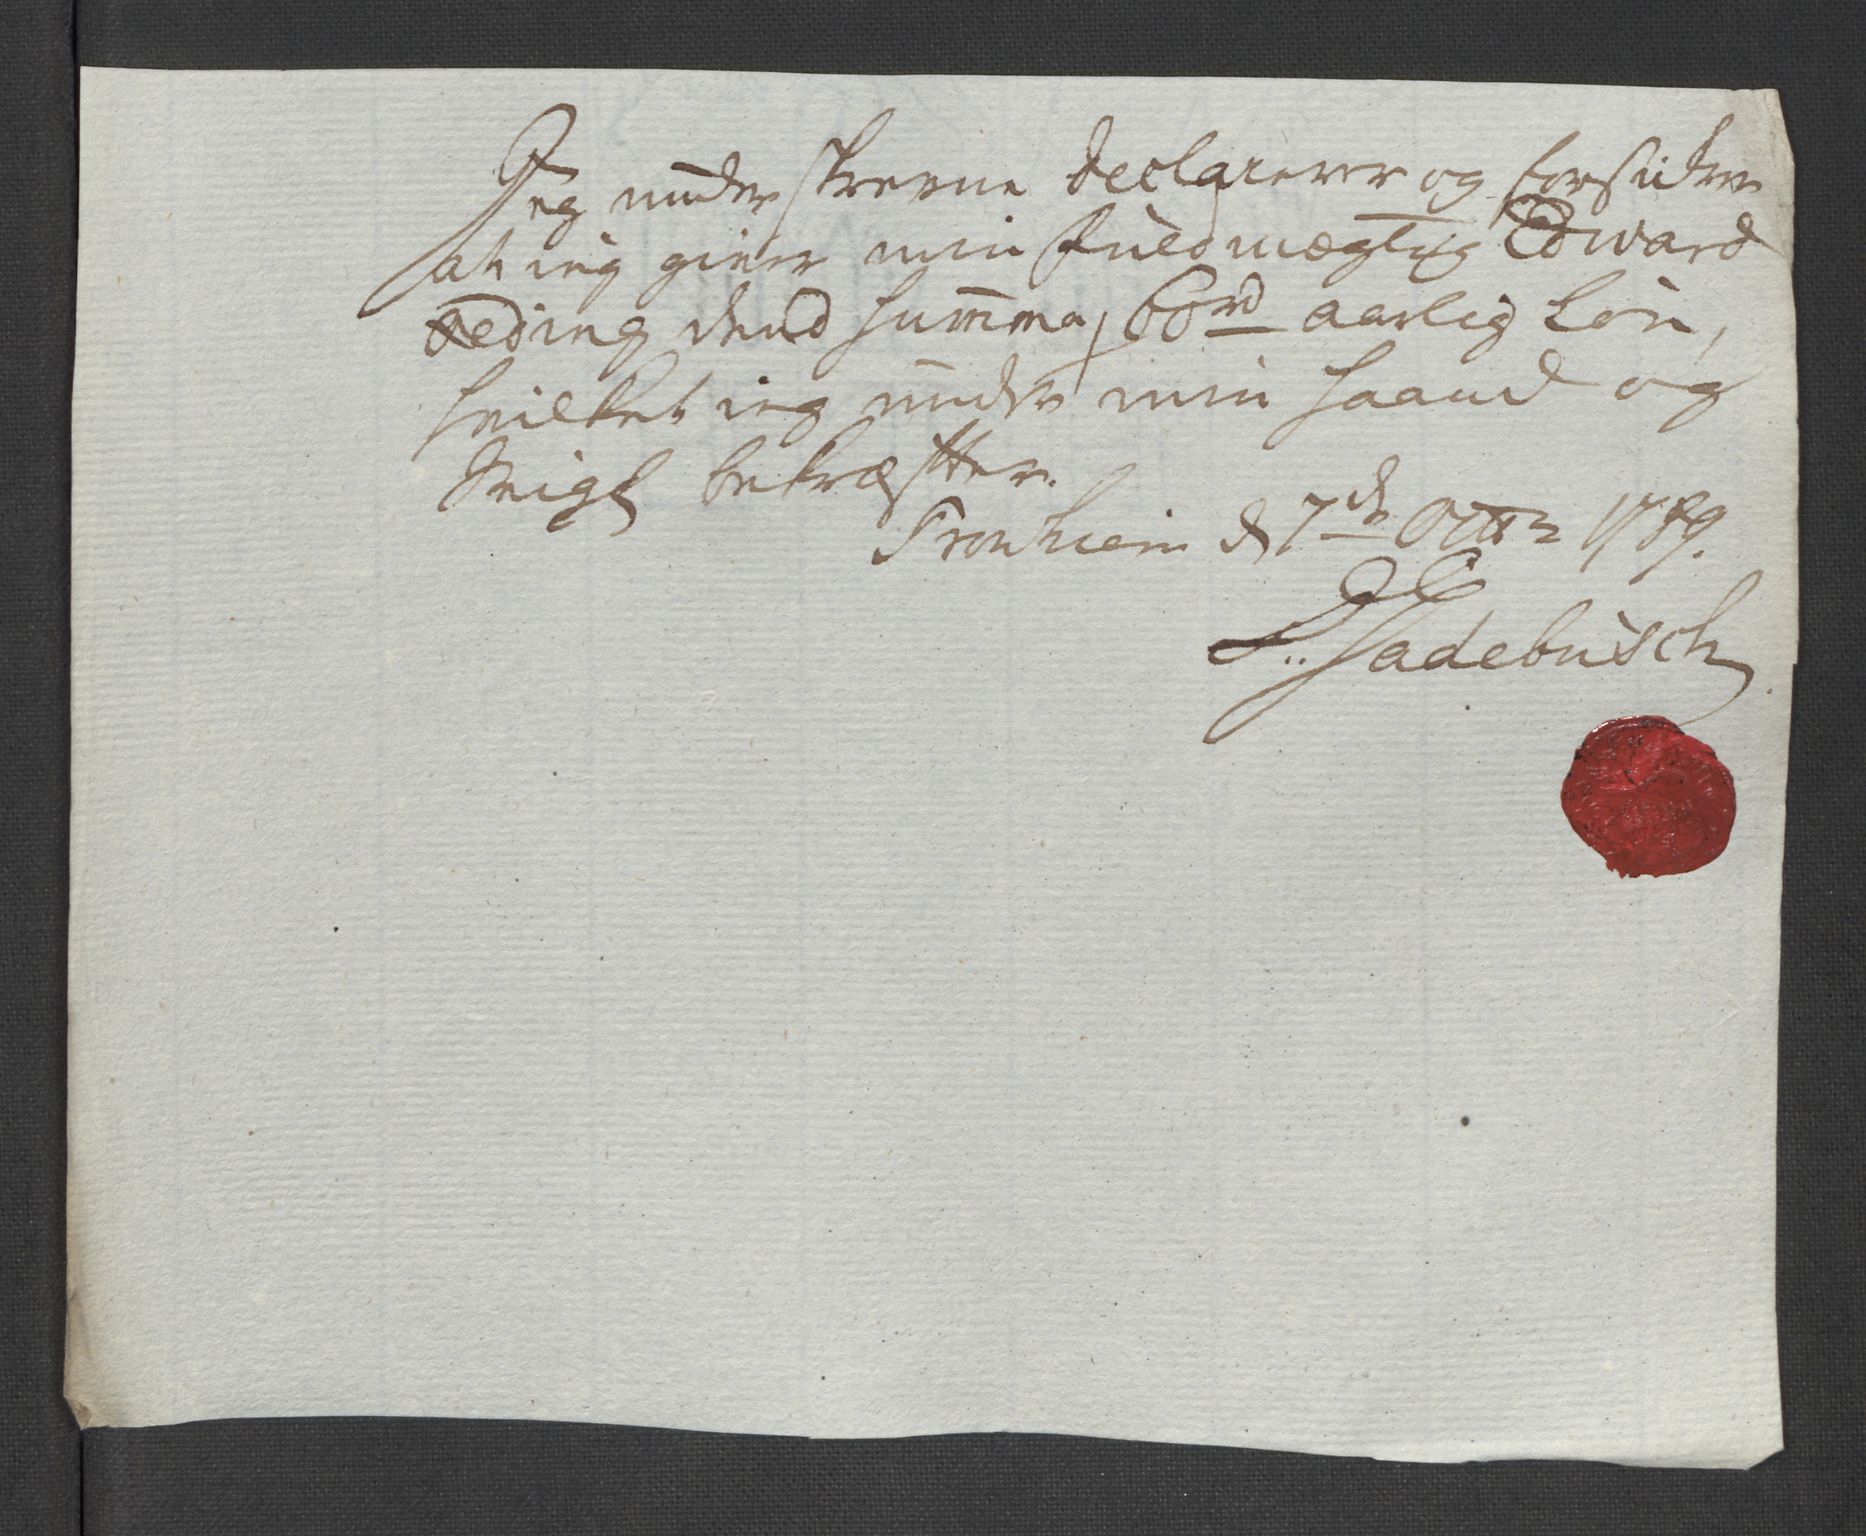 Jeg underskrevne declarerer og forsickrer
at ieg giver min Fuldmægtig Edward
Æding dend Summa, 60 rd aarlig Løn,
hvilket ieg under min Haand og
Seigl bekræfter.
Tronhiem d 7de Octbr 1789.
Hadebusch